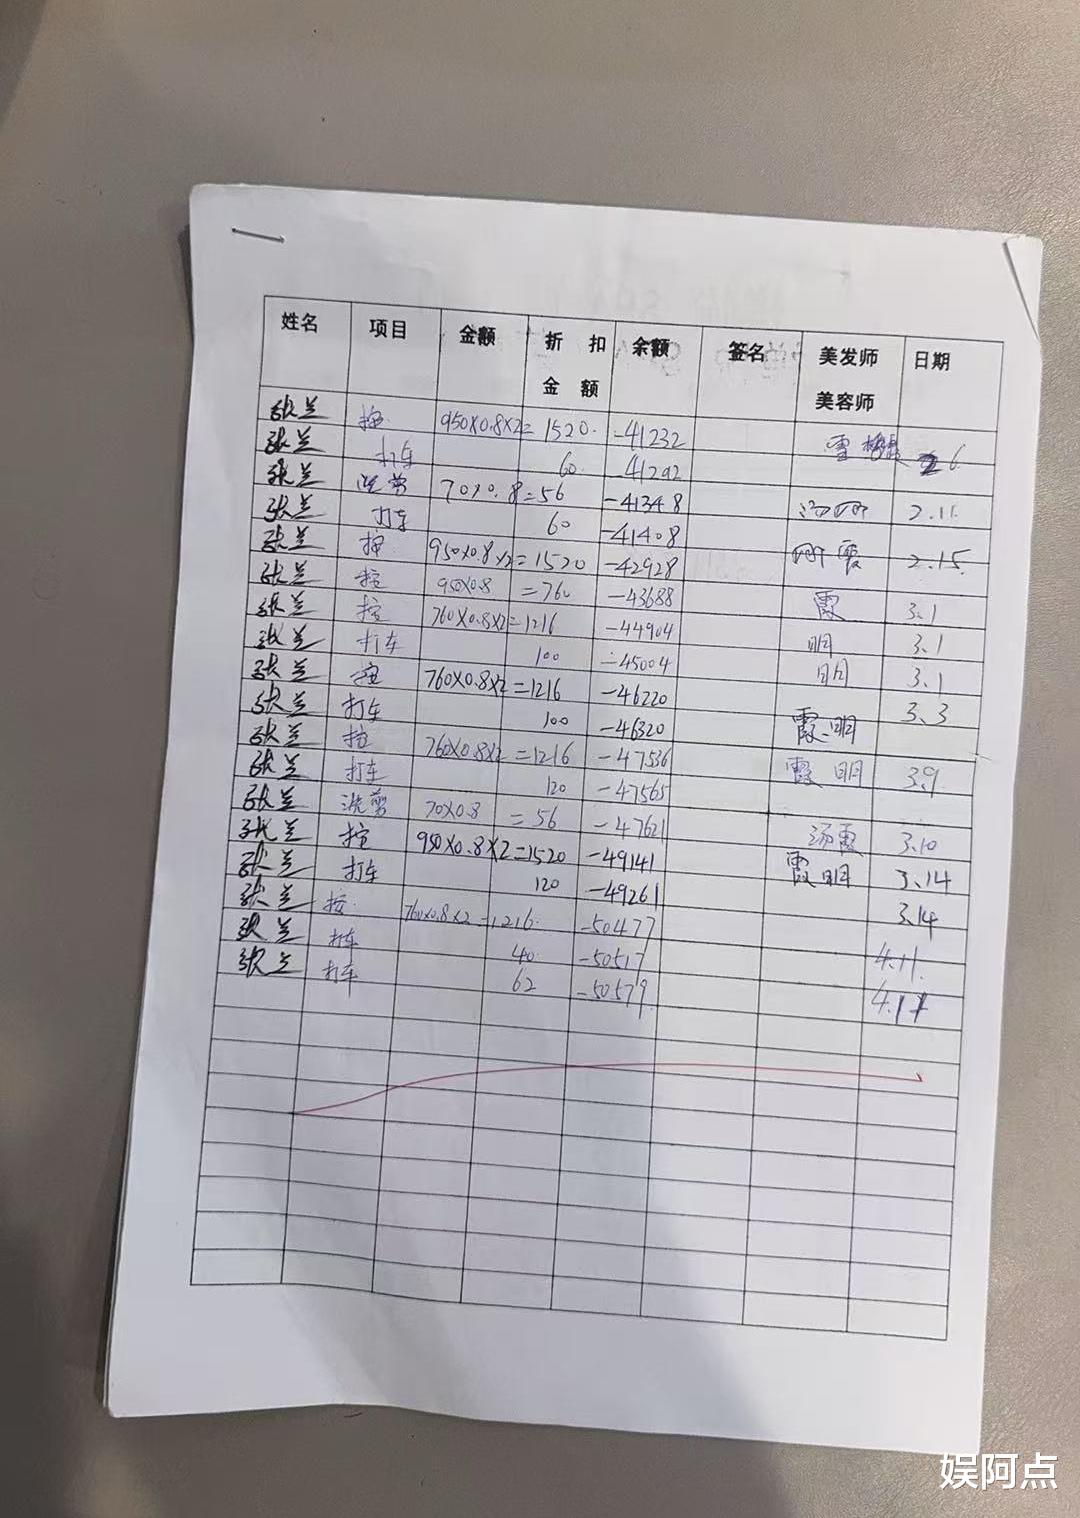 姓名 项目 金额 折扣金额 余额 签名 美发师 美容师 日期
张兰 按 950X0.8X2= 1520. -41232 6
张兰 打车 60 41292
张兰 洗剪 70X0.8 =56 -41348 2.11
张兰 打车 60 -41408
张兰 按 950X0.8X2 =1520 -42928 霞 2.15
张兰 按 950X0.8 =760 -43688 霞 3.1
张兰 按 760X0.8X2 =1216 -44904 明 3.1
张兰 打车 100 -45004 明 3.1
张兰 按 760X0.8X2 =1216 -46220 3.3
张兰 打车 100 -46320 霞.明
张兰 按 760X0.8X2 =1216 -47536 霞 明 3.9
张兰 打车 120 -47565
张兰 洗剪 70X0.8 =56 -47621 汤霞 3.10
张兰 按 950X0.8X2 =1520 -49141 霞明 3.14
张兰 打车 120 -49261 3.14
张兰 按 760X0.8X2 =1216. -50477
张兰 打车 40 -50517 4.11.
张兰 打车 62 -50579
娱阿点